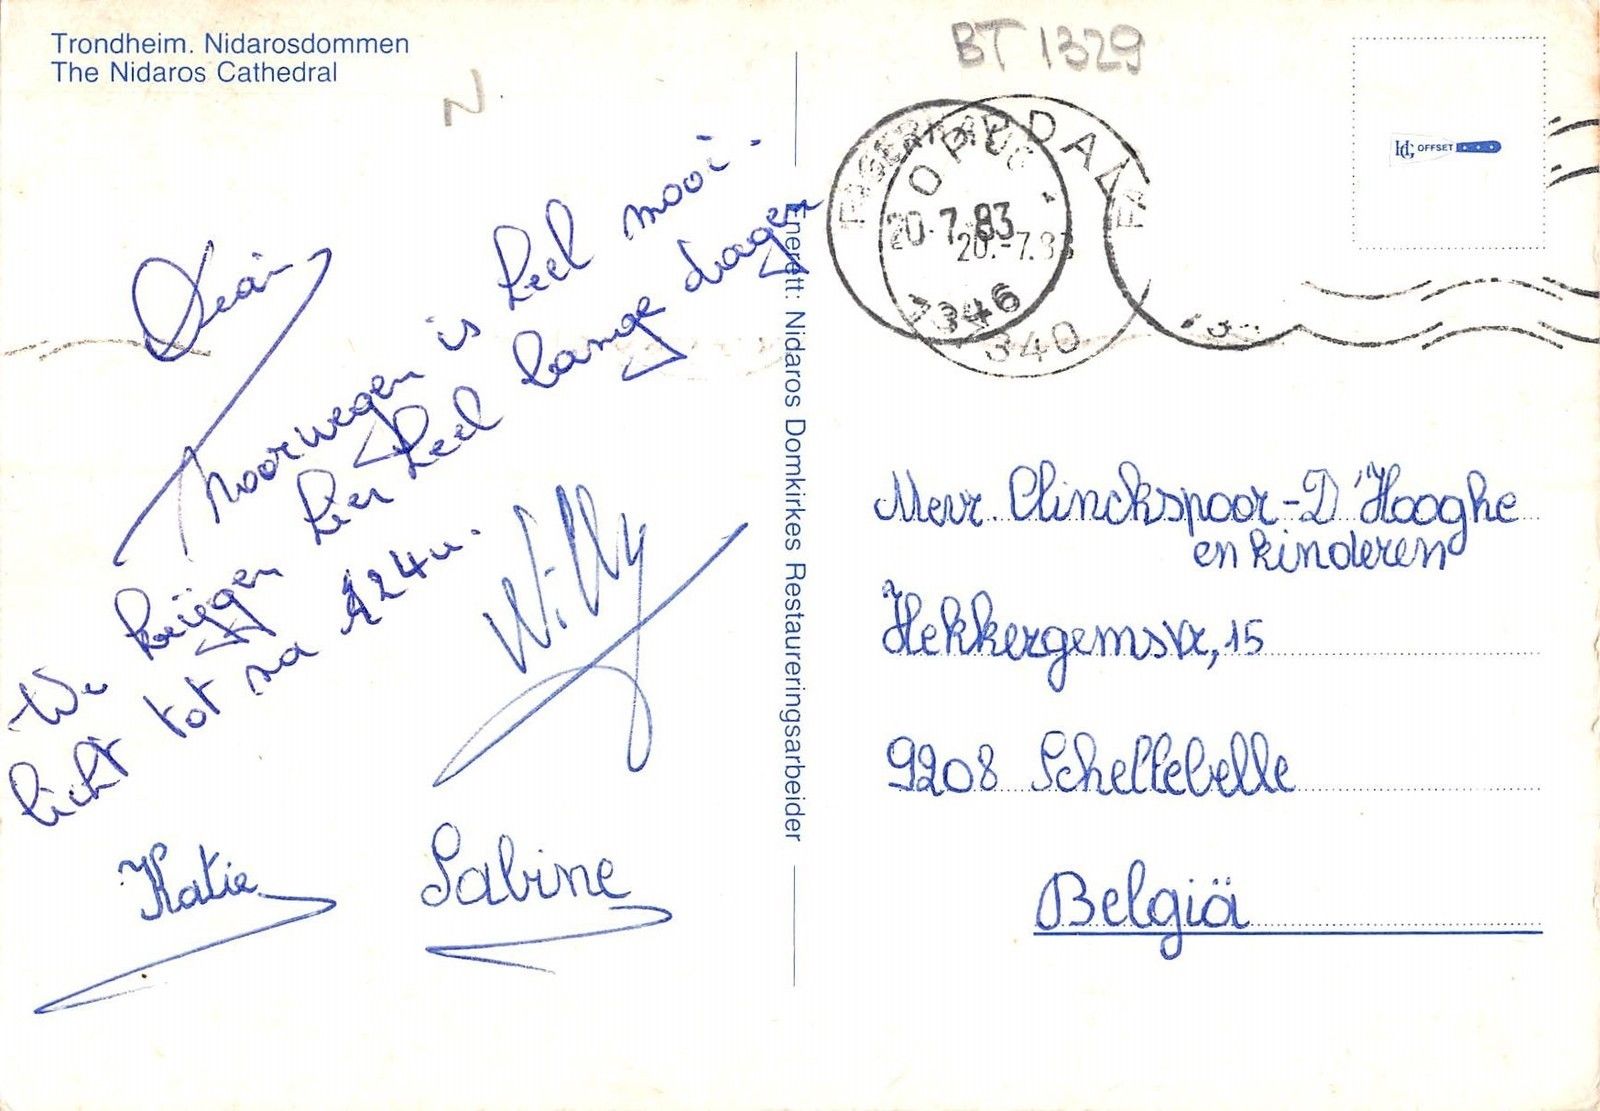 Trondheim. Nidarosdommen
The Nidaros Cathedral
N
BT 1329
OFFSET
OPPDAL
20.7.83
20.-7.83
7346
7340
Noorwegen is heel mooi.
We krijgen hier heel lange dagen
licht tot na 24u.
Willy
Katie
Sabine
Enerett: Nidaros Domkirkes Restaureringsarbeider
Mevr. Clinckspoor-D'Hooghe
en kinderen
Hekkergemstr, 15
9208 Schellebelle
Belgiä